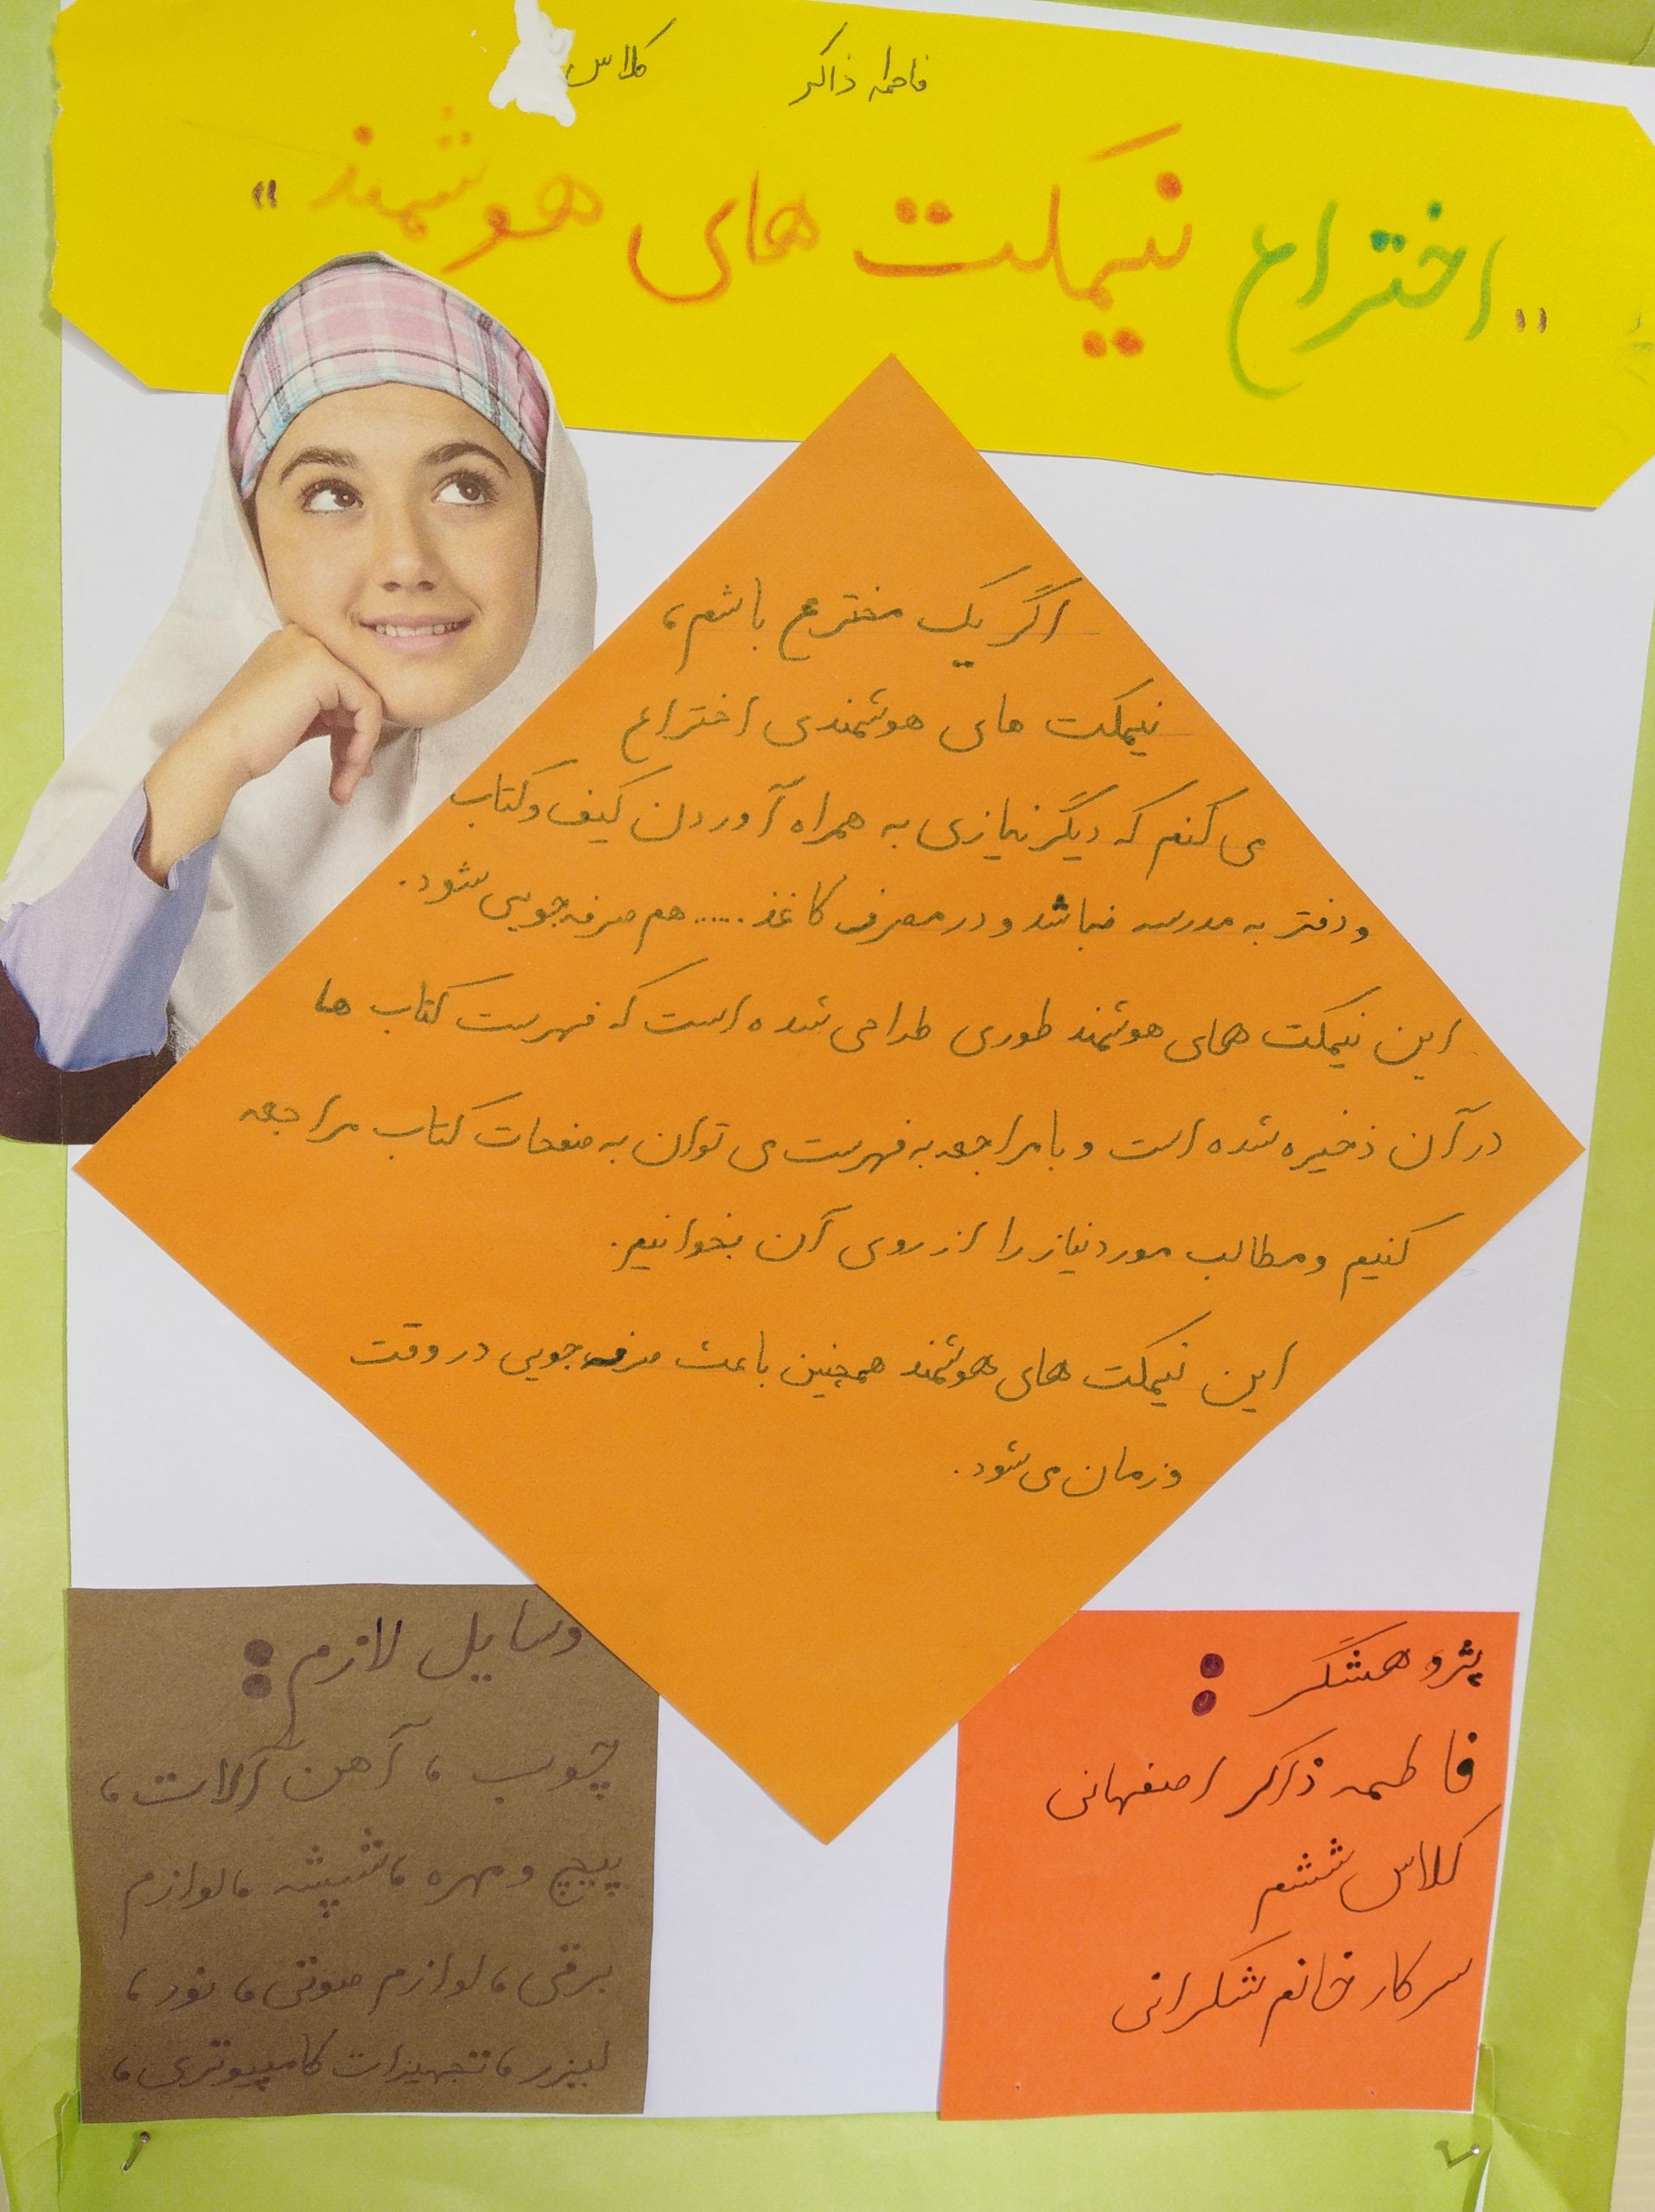 فاطمه ذاکر کلاس
"اختراع نیمکت های هوشمند"
اگر یک مخترع باشم،
نیمکت های هوشمندی اختراع
می کنم که دیگر نیازی به همراه آوردن کیف و کتاب
و دفتر به مدرسه نباشد و در مصرف کاغذ ...... هم صرفه جویی شود.
این نیمکت های هوشمند طوری طراحی شده است که فهرست کتاب ها
در آن ذخیره شده است و با مراجعه به فهرست می توان به صفحات کتاب مراجعه
کنیم و مطالب مورد نیاز را از روی آن بخوانیم.
این نیمکت های هوشمند همچنین باعث صرفه جویی در وقت
و زمان می شود.
پژوهشگر :
فاطمه ذاکر اصفهانی
کلاس ششم
سرکار خانم شکرانی
وسایل لازم :
چوب ، آهن آلات ،
پیچ و مهره ، شیشه ، لوازم
برقی ، لوازم صوتی ، نور ،
لیزر ، تجهیزات کامپیوتری ،